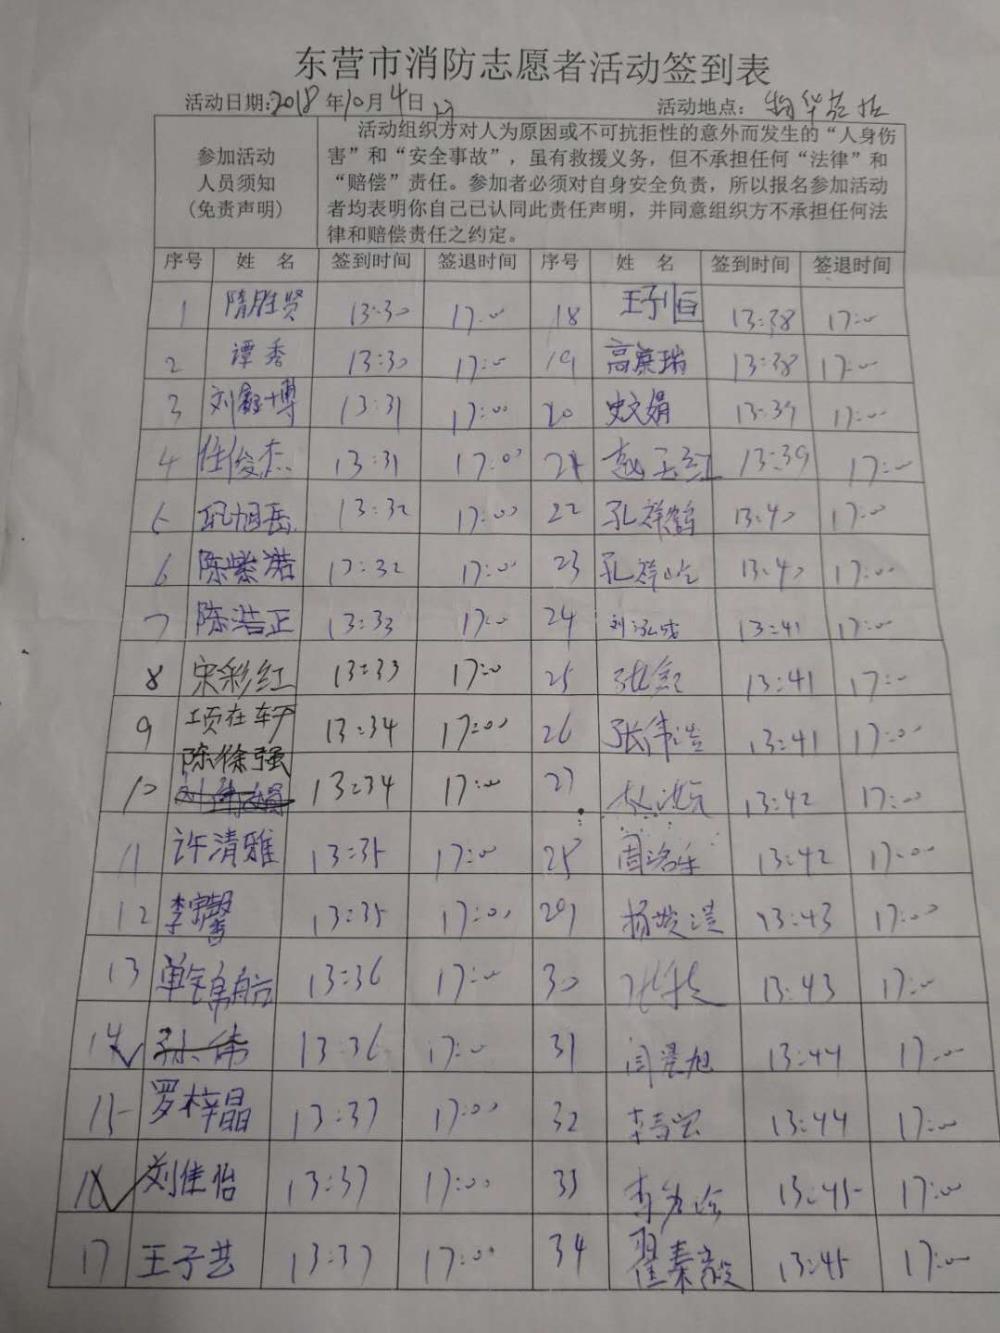 东营市消防志愿者活动签到表
活动日期:2018年10月4日 活动地点:
参加活动
人员须知
(免责声明)
活动组织方对人为原因或不可抗拒性的意外而发生的“人身伤
害”和“安全事故”，虽有救援义务，但不承担任何“法律”和
“赔偿”责任。参加者必须对自身安全负责，所以报名参加活动
者均表明你自己已认同此责任声明，并同意组织方不承担任何法
律和赔偿责任之约定。
序号 姓 名 签到时间 签退时间 序号 姓 名 签到时间 签退时间
1 隋胜贤 13:30 17:00 18 王子恒 13:38 17:00
2 谭秀 13:30 17:00 19 高寒瑞 13:38 17:00
3 刘 博 13:31 17:00 20 史文娟 13:39 17:00
4 任俊杰 13:31 17:00 21 赵玉红 13:39 17:00
5 巩旭岳 13:32 17:00 22 孔祥鹤 13:40 17:00
6 陈紫诺 13:32 17:00 23 孔祥 13:40 17:00
7 陈浩正 13:33 17:00 24 刘泓成 13:41 17:00
8 宋彩红 13:33 17:00 25 张 13:41 17:00
9 项在轩 13:34 17:00 26 张伟浩 13:41 17:00
10 陈徐强 13:34 17:00 27 13:42 17:00
11 许清雅 13:35 17:00 28 周洛乐 13:42 17:00
12 李宇馨 13:35 17:00 29 杨 13:43 17:00
13 单锦航 13:36 17:00 30 13:43 17:00
14 孙伟 13:36 17:00 31 闫景旭 13:44 17:00
15 罗梓晶 13:37 17:00 32 李 13:44 17:00
16 刘佳怡 13:37 17:00 33 李 13:45 17:00
17 王子艺 13:37 17:00 34 翟秦毅 13:45 17:00